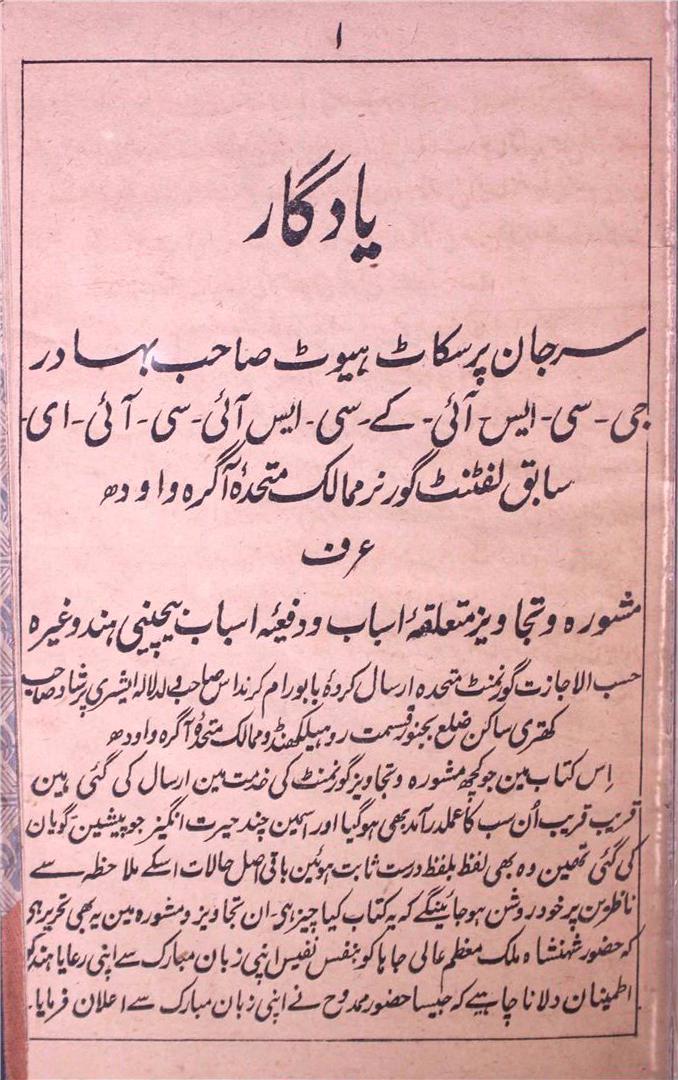 ۱
یادگار
سرجان پرسکاٹ ہیوٹ صاحب بہادر
جی-سی-ایس-آئی-کے-سی-ایس آئی-سی-آئی-ای-
سابق لفٹنٹ گورنر ممالک متحدۂ آگرہ و اودھ
عرف
مشورہ و تجاویز متعلقۂ اسباب و دفعیۂ اسباب بیچینی ہند وغیرہ
حسب الاجازت گورنمنٹ متحدہ ارسال کردۂ بابو رام کرنداس صاحب ولد لالہ ایشری پرشاد صاحب
کھتری ساکن ضلع بجنور قسمت روہیلکھنڈ و ممالک متحدۂ آگرہ و اودھ
اِس کتاب مین جو کچھ مشورہ و تجاویز گورنمنٹ کی خدمت مین ارسال کی گئی ہین
قریب قریب اُن سب کا عملدرآمد بھی ہوگیا اور اسمین چند حیرت انگیز جو پیشین-گویان
کی گئی تھین وہ بھی لفظ بلفظ درست ثابت ہوئین باقی اصل حالات اسکے ملاحظہ سے
ناظرین پر خود روشن ہو جائینگے کہ یہ کتاب کیا چیز ہی-ان تجاویز و مشورہ مین یہ بھی تحریر ہی
کہ حضور شہنشاہ ملک معظم عالی جاہا کو بنفس نفیس اپنی زبان مبارک سے اپنی رعایا ہند کو
اطمینان دلانا چاہیے کہ جیسا حضور ممدوح نے اپنی زبان مبارک سے اعلان فرمایا-